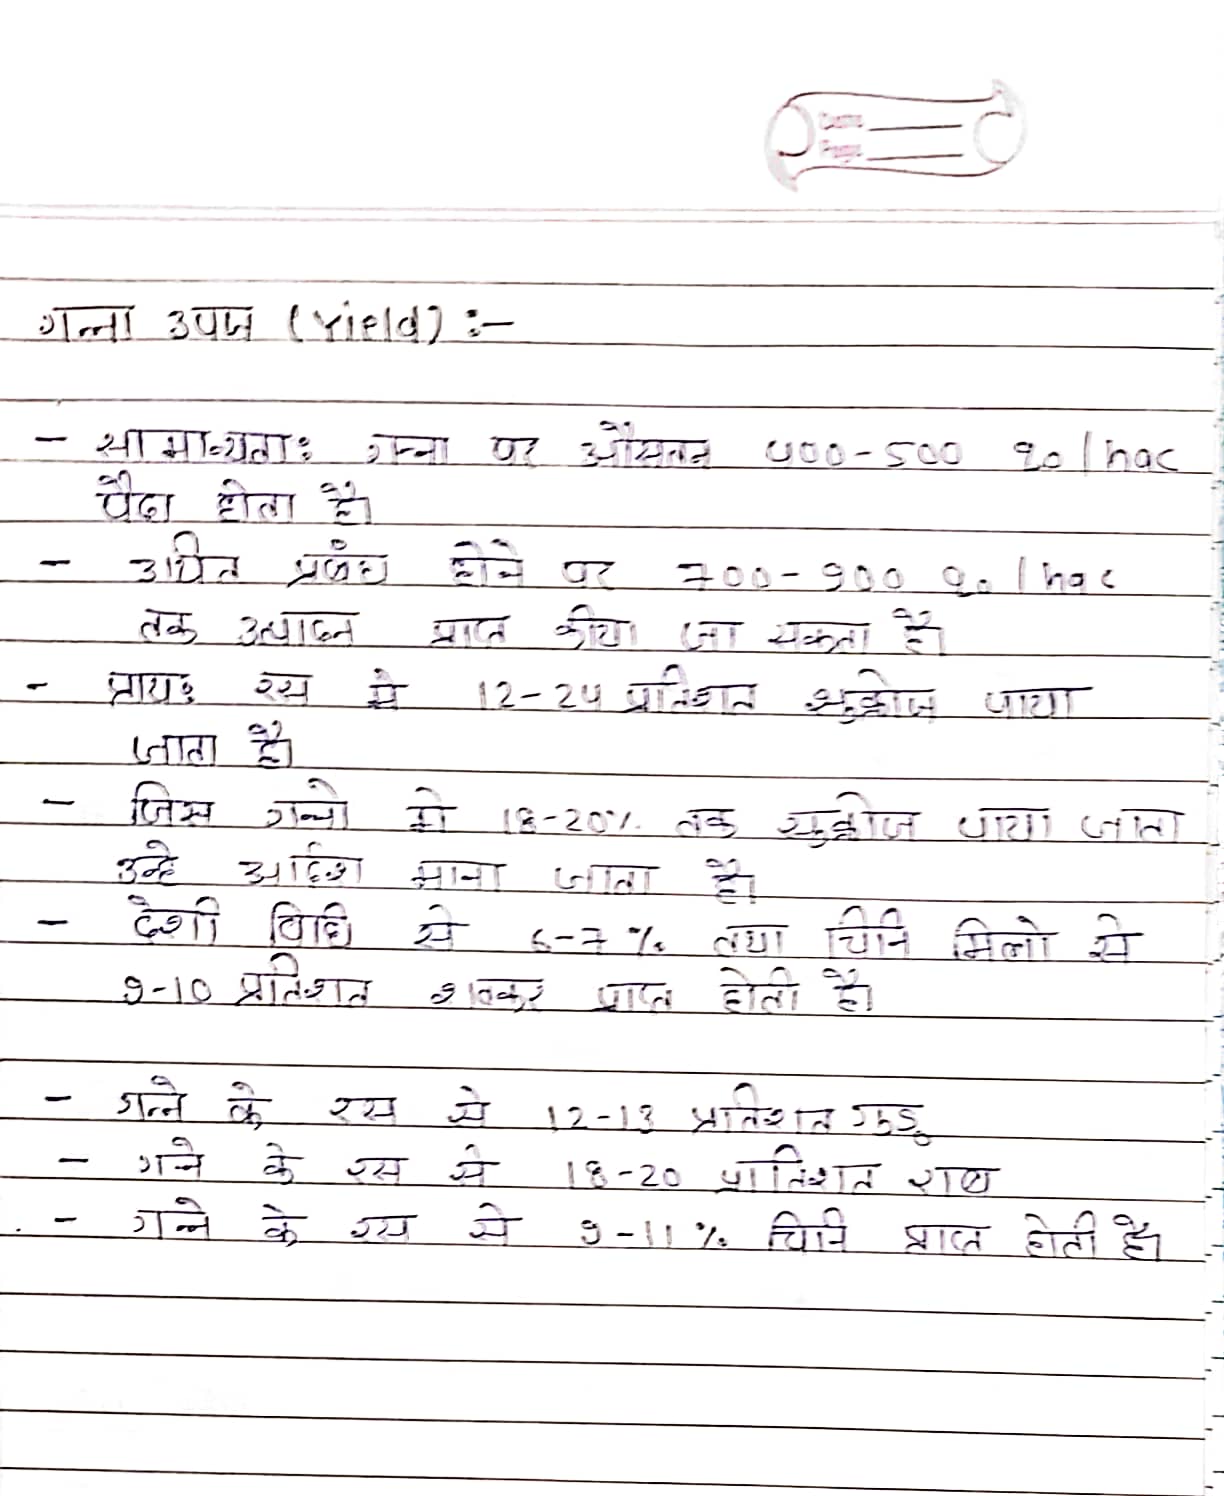 Date
Page
गन्ना उपज (Yield) :-
- सामान्यताः गन्ना पर औसतन 400-500 q०/hac
पैदा होता है।
- उचित प्रबंध होने पर 700-900 q०/hac
तक उत्पादन प्राप्त कीया जा सकता है।
- प्रायः रस मे 12-24 प्रतिशत सुक्रोज पाया
जाता है।
- जिस गन्नो मे 18-20% तक सुक्रोज पाया जाता
उन्हे आर्दश माना जाता है।
- देशी विधि से 6-7% तथा चिनि मिलो से
9-10 प्रतिशत शक्कर प्राप्त होती है।
- गन्ने के रस से 12-13 प्रतिशत गुड़
- गन्ने के रस से 18-20 प्रतिशत राब
- गन्ने के रस से 9-11% चिनि प्राप्त होती है।